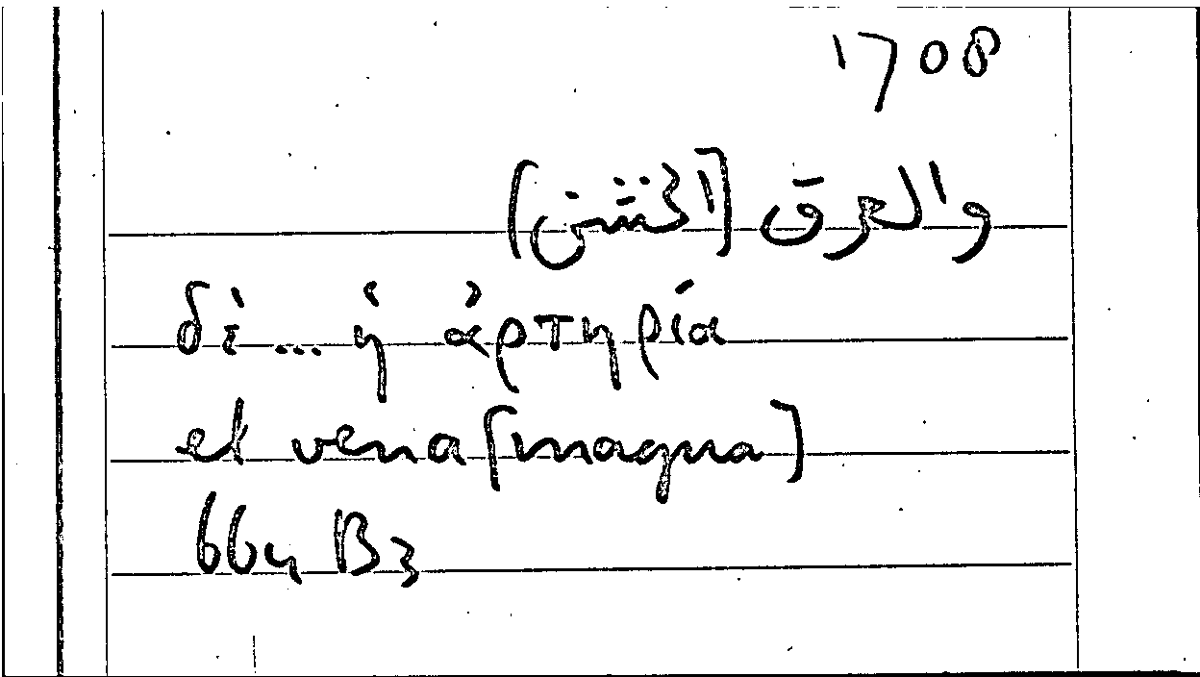 1708
والعرق [الخشن]
δὲ ... ἡ ἀρτηρία
et vena [magna]
664 B3